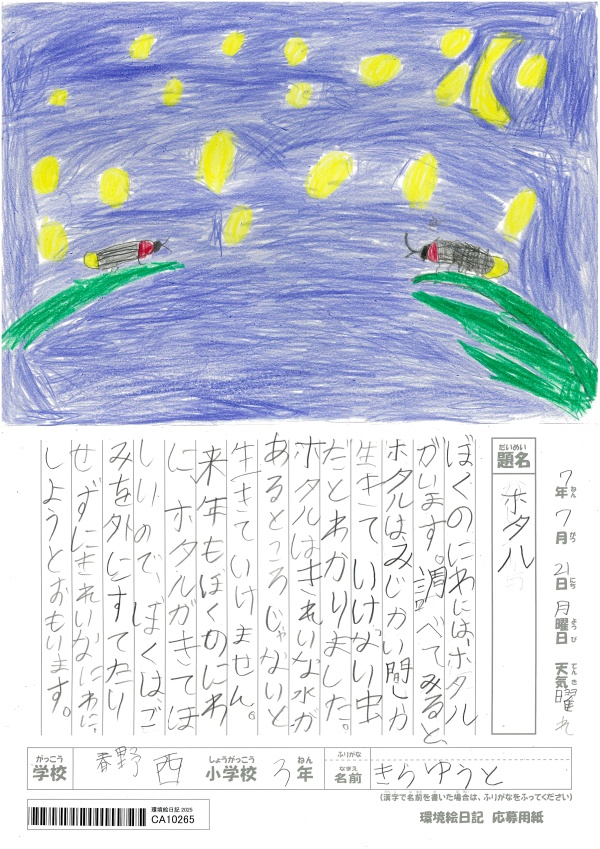 7年7月21日月曜日 天気 曜れ
ねん がつ にち ようび てんき
だいめい
題名 ホタル
ぼくのにわには、ホタル
がいます。調べてみると、
ホタルはみじかい間しか
生きていけない虫
だとわかりました。
ホタルはきれいな水が
あるところじゃないと
生きていけません。
来年もぼくのにわ
に、ホタルがきてほ
しいので、ぼくはご
みを外にすてたり
せずにきれいなにわに、
しようとおもいます。
がっこう しょうがっこう ねん
学校 春野西 小学校 3年
ふりがな
なまえ
名前 きらゆうと
(漢字で名前を書いた場合は、ふりがなをふってください)
環境絵日記 応募用紙
環境絵日記 2025
CA10265